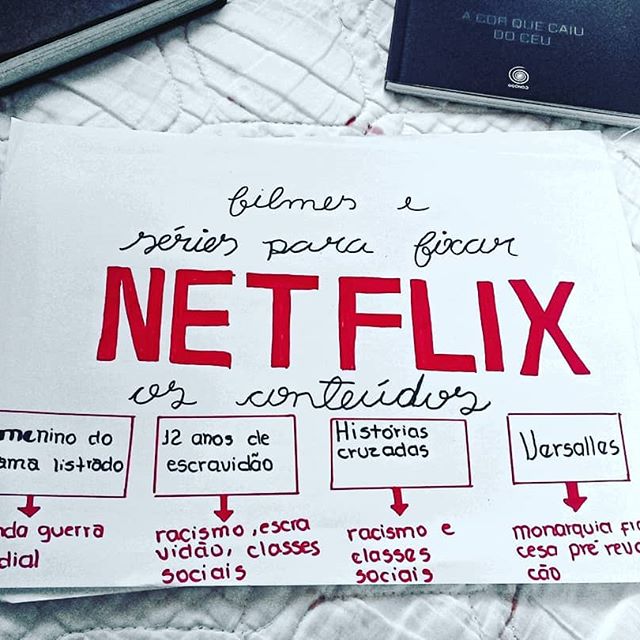 A COR QUE CAIU
DO CÉU
filmes e
séries para fixar
NETFLIX
os conteúdos
menino do
ama listrado
nda guerra
dial
12 anos de
escravidão
racismo, escra
vidão, classes
sociais
Histórias
cruzadas
racismo e
classes
sociais
Versalles
monarquia fra
cesa pré revo
cão